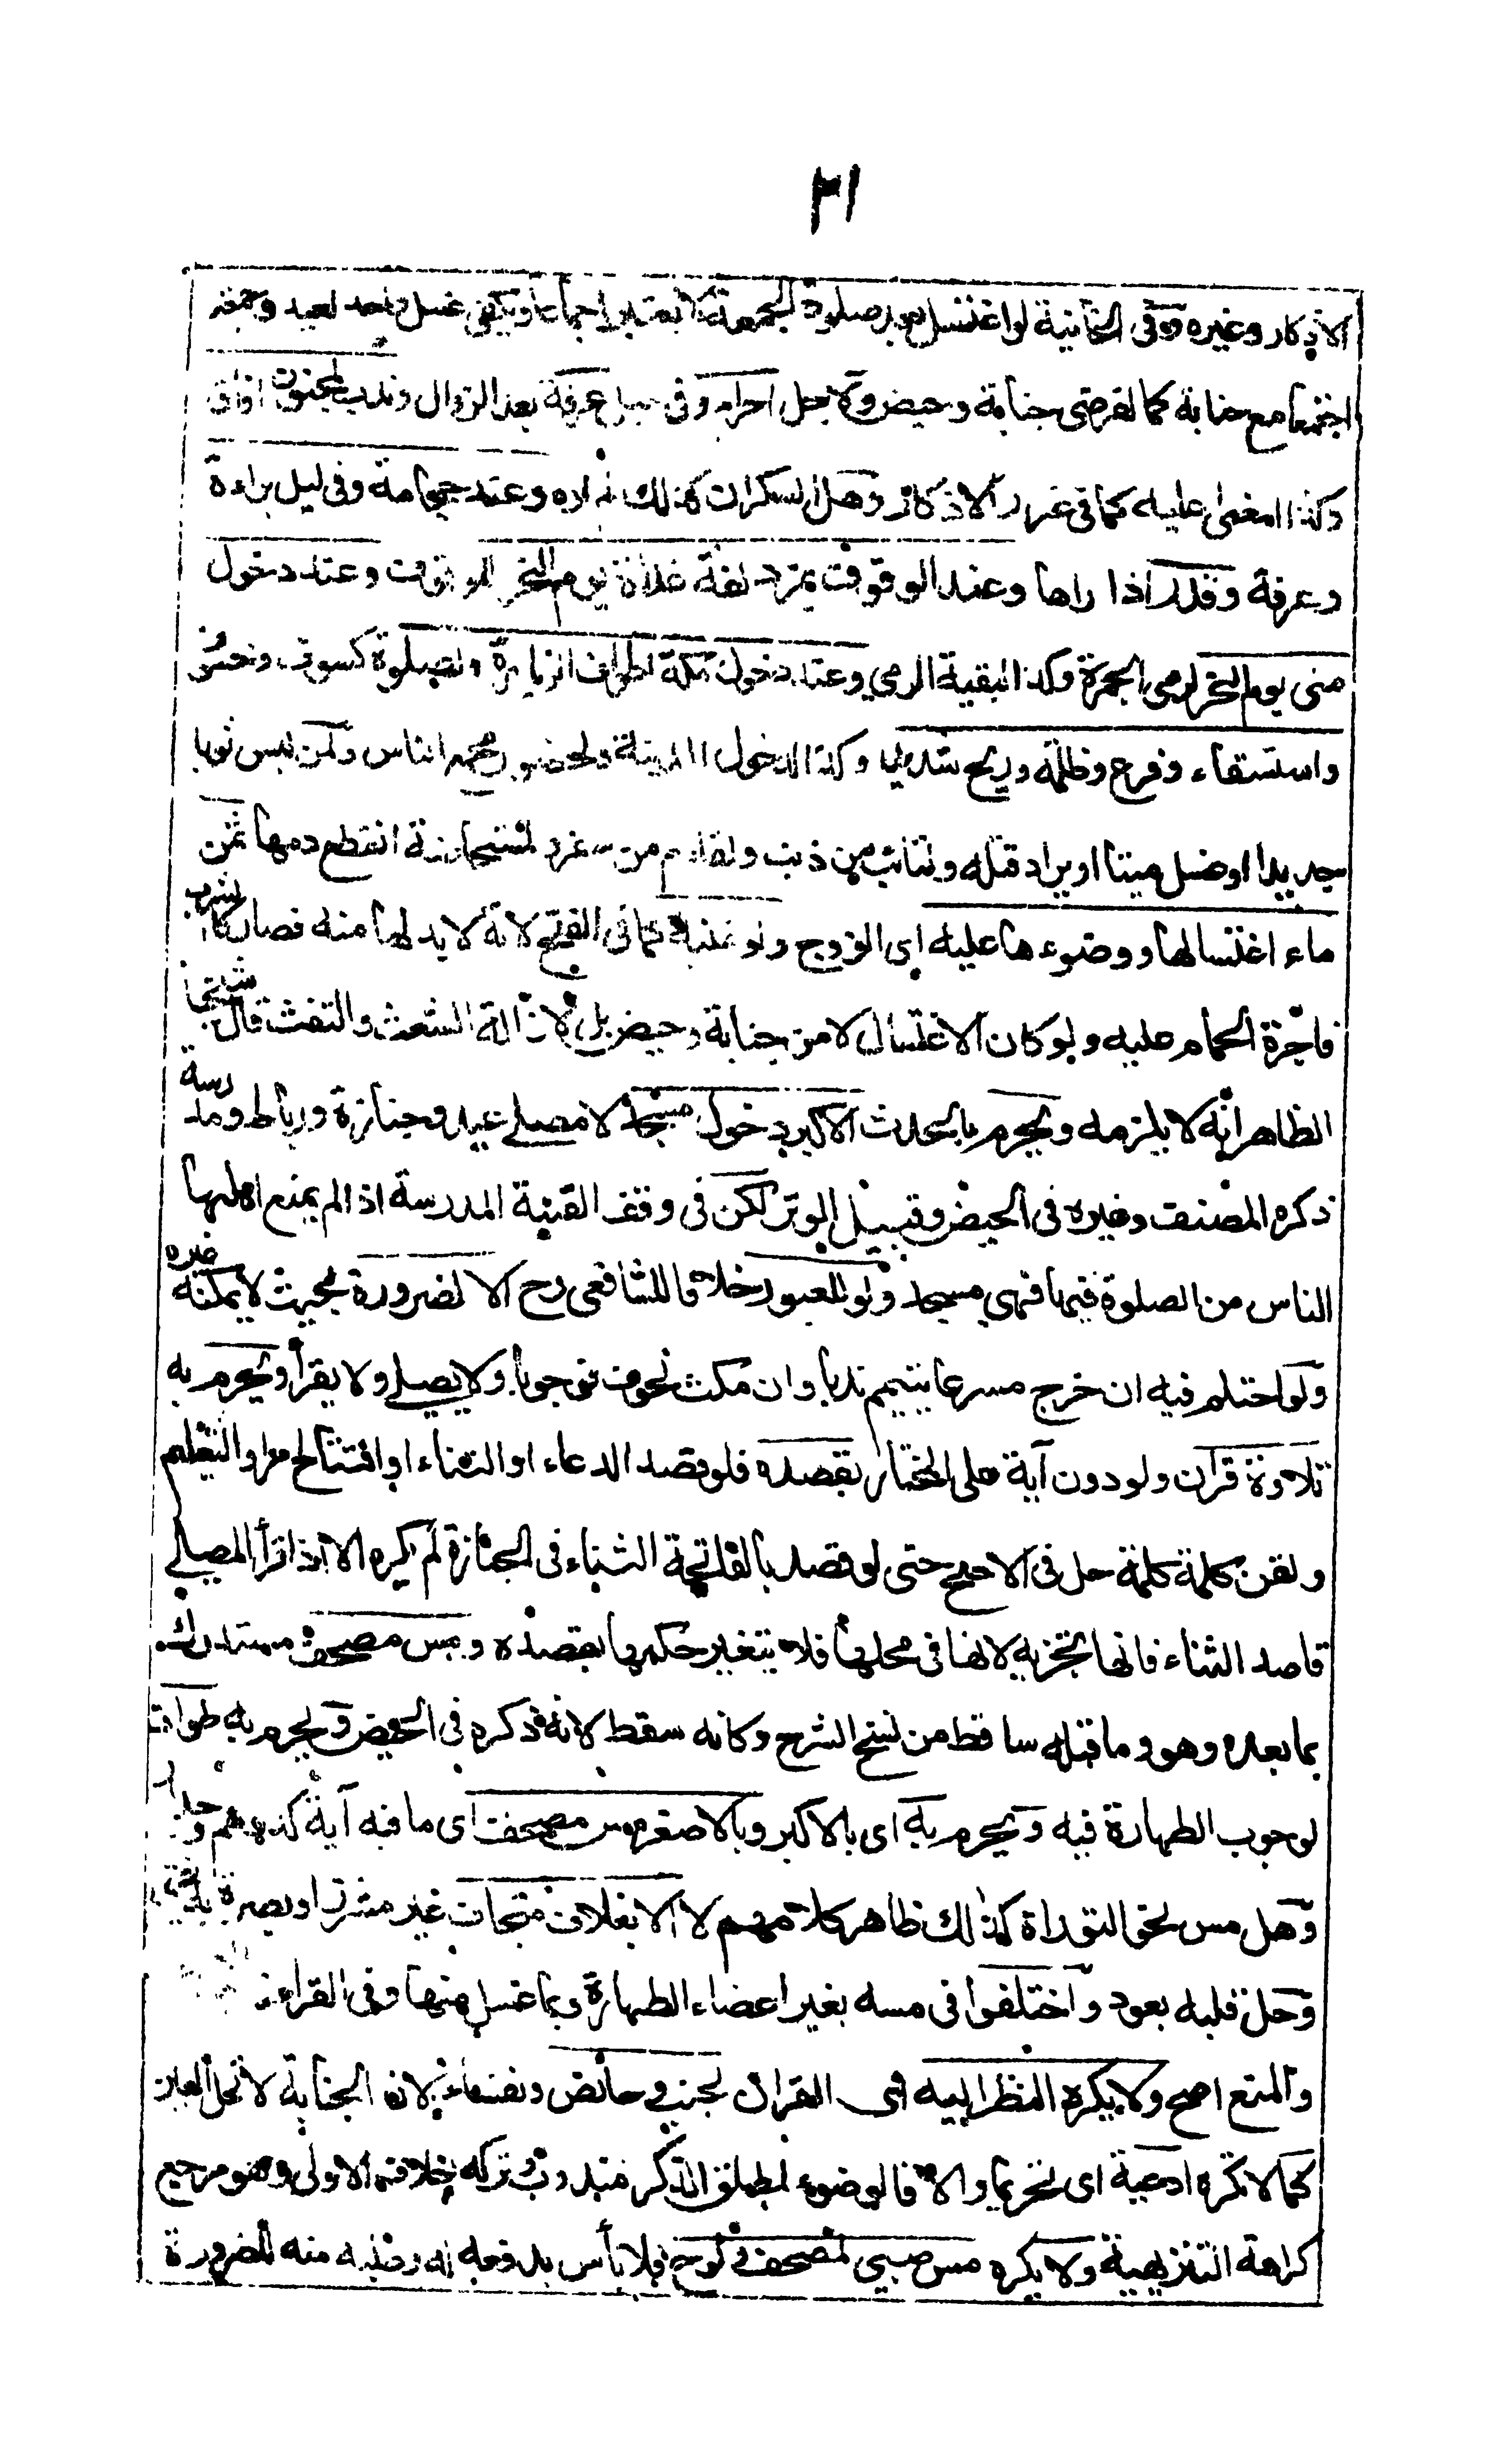 ٣١
الاذكار وغيره وفى الخانية لو اغتسل بعد صلوة الجمعة لا يعتبر اجماعا ويكفى غسل واحد لعيد وجمعة
اجتمعا مع جنابة كما لفرضى جنابة وحيض ولاجل احرام وفى جبل عرفة بعد الزوال وندب لمجنون افاق
وكذا المغمى عليه كما فى غرر الاذكار وهل السكران كذلك لم اره وعند حجامة وفى ليل براءة
وعرفة وقدر اذا راها وعند الوقوف بمزدلفة غداة يوم النحر للوقوف وعند دخول
منى يوم النحر لرمى الجمرة وكذا لبقية الرمي وعند دخول مكة لطواف الزيارة ولصلوة كسوف وخسوف
واستسقاء وفزع وظلمة وريح شديد وكذا لدخول المدينة ولحضور مجمع الناس ولمن لبس ثوبا
جديدا او غسل ميتا او يراد قتله ولتائب من ذنب ولقادم من سفر ولمستحاضة انقطع دمها ثمن
ماء اغتسالها ووضوءها عليه اى الزوج ولو غنية كما فى الفتح لانه لا بد لها منه فصار كالشرب
فاجرة الحمام عليه ولو كان الاغتسال لا من جنابة وحيض بل لازالة الشعث والتفث قال شيخنا
الظاهر انه لا يلزمه ويحرم بالحدث الاكبر دخول مسجد لا مصلى عيد وجنازة ورباط ومدرسة
ذكره المصنف وغيره فى الحيض وقبيل الوتر لكن فى وقف القنية المدرسة اذا لم يمنع اهلها
الناس من الصلوة فيها فهى مسجد ولو للعبور خلافا للشافعى رح الا لضرورة بحيث لا يمكنه غيره
ولو احتلم فيه ان خرج مسرعا يتيمم ندبا وان مكث لخوف فوجوبا ولا يصلى ولا يقرأ ويحرم به
تلاوة قرآن ولو دون آية على المختار بقصده فلو قصد الدعاء او الثناء او افتتاح امر او التعليم
ولقن كلمة كلمة حل فى الاصح حتى لو قصد بالفاتحة الثناء فى الجنازة لم يكره الا اذا قرأ المصلى
قاصد الثناء فانها تجزيه لانها فى محلها فلا يتغير حكمها بقصده ومس مصحف مستدرك
بما بعده وهو وما قبله ساقط من نسخ الشرح وكانه سقط لانه ذكره فى الحيض ويحرم به طواف
لوجوب الطهارة فيه ويحرم به اى بالاكبر وبالاصغر مس مصحف اى ما فيه آية كدرهم وجدار
وهل مس نحو التوراة كذلك ظاهر كلامهم لا الا بغلاف متجاف غير مشرز او بصرة به يفتى
وحل قلبه بعود واختلفوا فى مسه بغير اعضاء الطهارة وبما غسل منها وفى القراءة
والمنع اصح ولا يكره النظر اليه اى القران لجنب وحائض ونفساء لان الجنابة لا تحل العين
كما لا تكره ادعية اى تحريما والا فالوضوء لمطلق الذكر مندوب وتركه خلاف الاولى وهو مرجع
كراهة التنزيهية ولا يكره مس صبي لمصحف ولوح فلا بأس بدفعه اليه وطلبه منه للضرورة